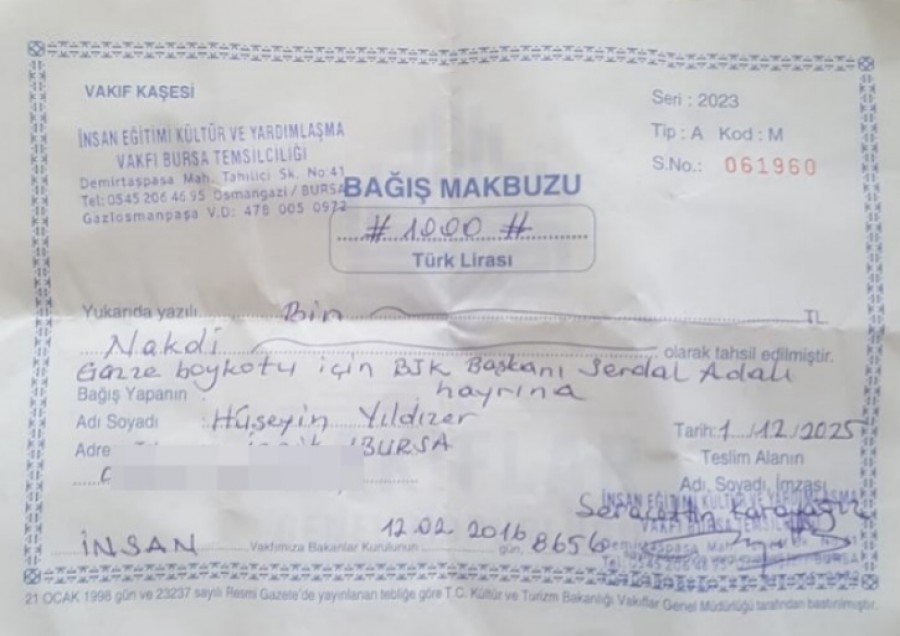 VAKIF KAŞESİ
İNSAN EĞİTİMİ KÜLTÜR VE YARDIMLAŞMA
VAKFI BURSA TEMSİLCİLİĞİ
Demirtaşpaşa Mah. Tahilici Sk. No:41
Tel:0545 206 46 95 Osmangazi / BURSA
Gaziosmanpaşa V.D: 478 005 0972
Seri : 2023
Tip : A Kod : M
S.No.: 061960
BAĞIŞ MAKBUZU
# 1000 #
Türk Lirası
Yukarıda yazılı Bin TL
Nakdi olarak tahsil edilmiştir.
Gazze boykotu için BJK Başkanı Serdal Adalı
hayrına
Bağış Yapanın
Adı Soyadı : Hüseyin Yıldızer
Adre /BURSA
Tarih: 1/12/2025
Teslim Alanın
Adı, Soyadı, İmzası
İNSAN EĞİTİMİ KÜLTÜR VE YARDIMLAŞMA
VAKFI BURSA TEMSİLCİLİĞİ
Demirtaşpaşa Mah.
Tel:0545 206 46 95 BURSA
İNSAN Vakfımıza Bakanlar Kurulunun 12.02.2016 gün, 8656
21 OCAK 1998 gün ve 23237 sayılı Resmi Gazete'de yayınlanan tebliğe göre T.C. Kültür ve Turizm Bakanlığı Vakıflar Genel Müdürlüğü tarafından bastırılmıştır.